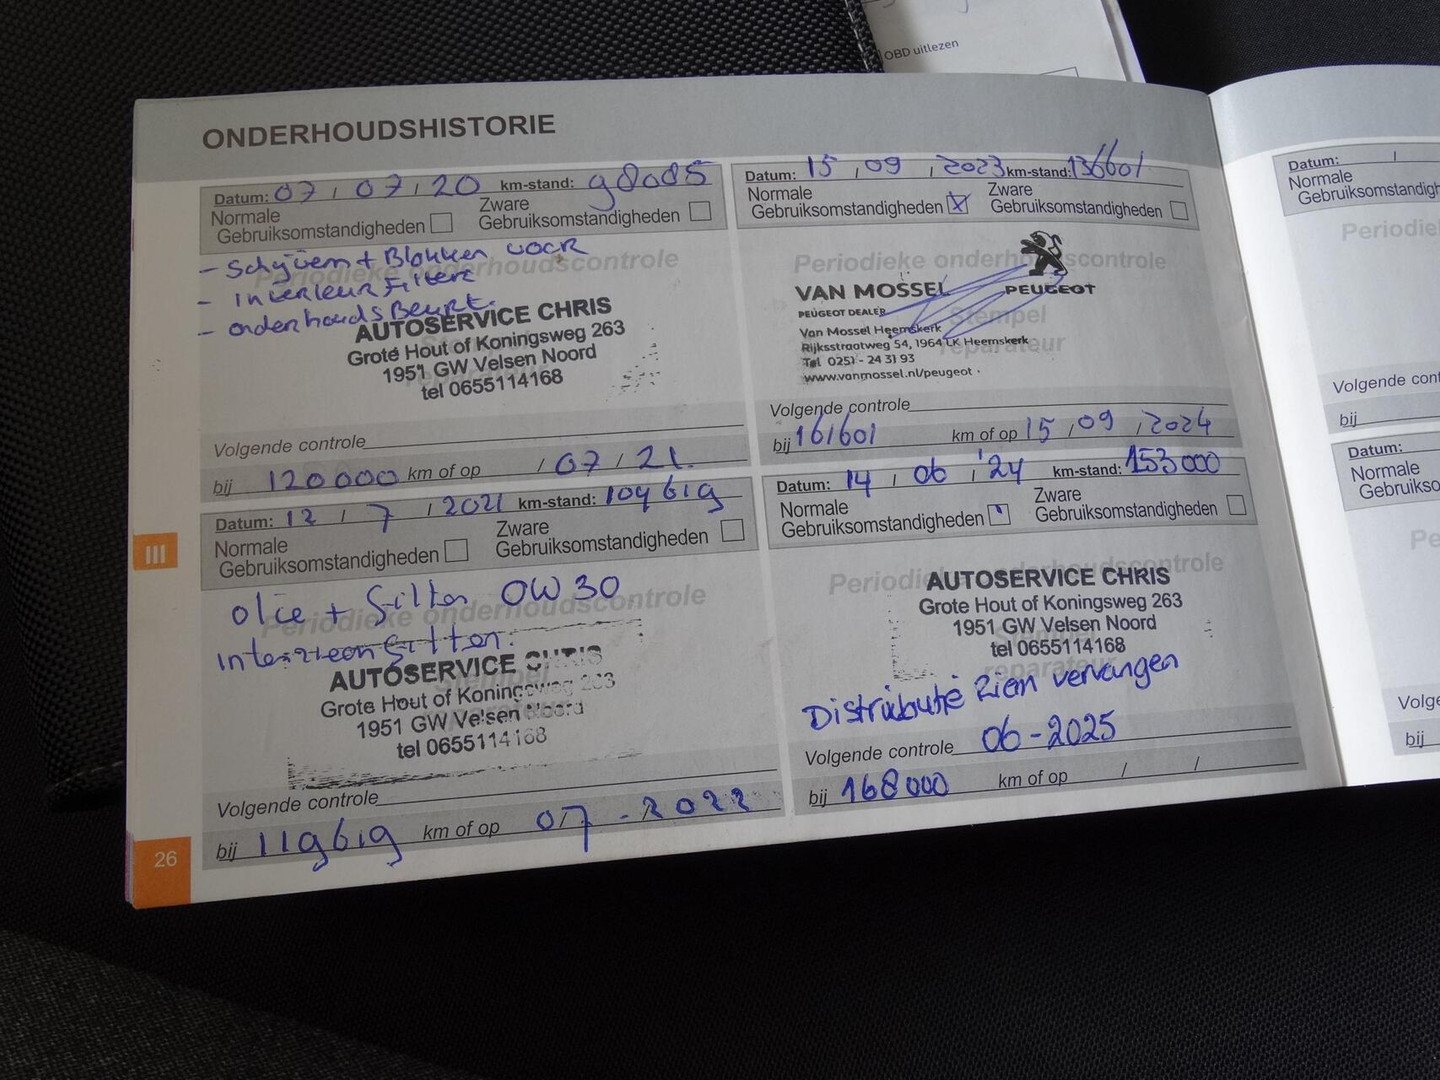 OBD uitlezen
ONDERHOUDSHISTORIE
Datum: 07 / 07 / 20 km-stand: 98085
Normale Gebruiksomstandigheden Zware Gebruiksomstandigheden
- Schijven + Blokken voor
Periodieke onderhoudscontrole
- Interieur Filters
- onderhoudsBeurt.
AUTOSERVICE CHRIS
Grote Hout of Koningsweg 263
1951 GW Velsen Noord
tel 0655114168
Volgende controle
bij 120000 km of op / 07 / 21.
Datum: 12 / 7 / 2021 km-stand: 109619
Normale Gebruiksomstandigheden Zware Gebruiksomstandigheden
Olie + filter 0W30
Periodieke onderhoudscontrole
AUTOSERVICE CHRIS
Grote Hout of Koningsweg 263
1951 GW Velsen Noord
tel 0655114168
Volgende controle
bij 119619 km of op 07 - 2022
III
26
Datum: 15 / 09 / 2023 km-stand: 136601
Normale Gebruiksomstandigheden X Zware Gebruiksomstandigheden
Periodieke onderhoudscontrole
VAN MOSSEL PEUGEOT
PEUGEOT DEALER
Stempel
reparateur
Van Mossel Heemskerk
Rijksstraatweg 54, 1964 LK Heemskerk
Tel 0251 - 24 31 93
www.vanmossel.nl/peugeot
Volgende controle
bij 161601 km of op 15 / 09 / 2024
Datum: 14 / 06 / '24 km-stand: 153000
Normale Gebruiksomstandigheden Zware Gebruiksomstandigheden
Periodieke onderhoudscontrole
AUTOSERVICE CHRIS
Grote Hout of Koningsweg 263
1951 GW Velsen Noord
tel 0655114168
reparateur
Distributie Riem vervangen
Volgende controle 06 - 2025
bij 168000 km of op / /
Datum: /
Normale
Gebruiksomstandigh
Periodiek
Volgende cont
bij
Datum:
Normale
Gebruikso
Pe
Volge
bij